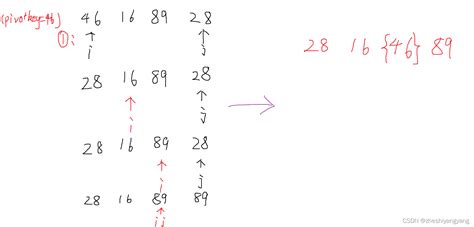 (pivotkey=46) 46 16 89 28
①: i j
28 16 {46} 89
28 16 89 28
i j
28 16 89 28
i j
28 16 89 89
i j
CSDN @zheshiyangyang